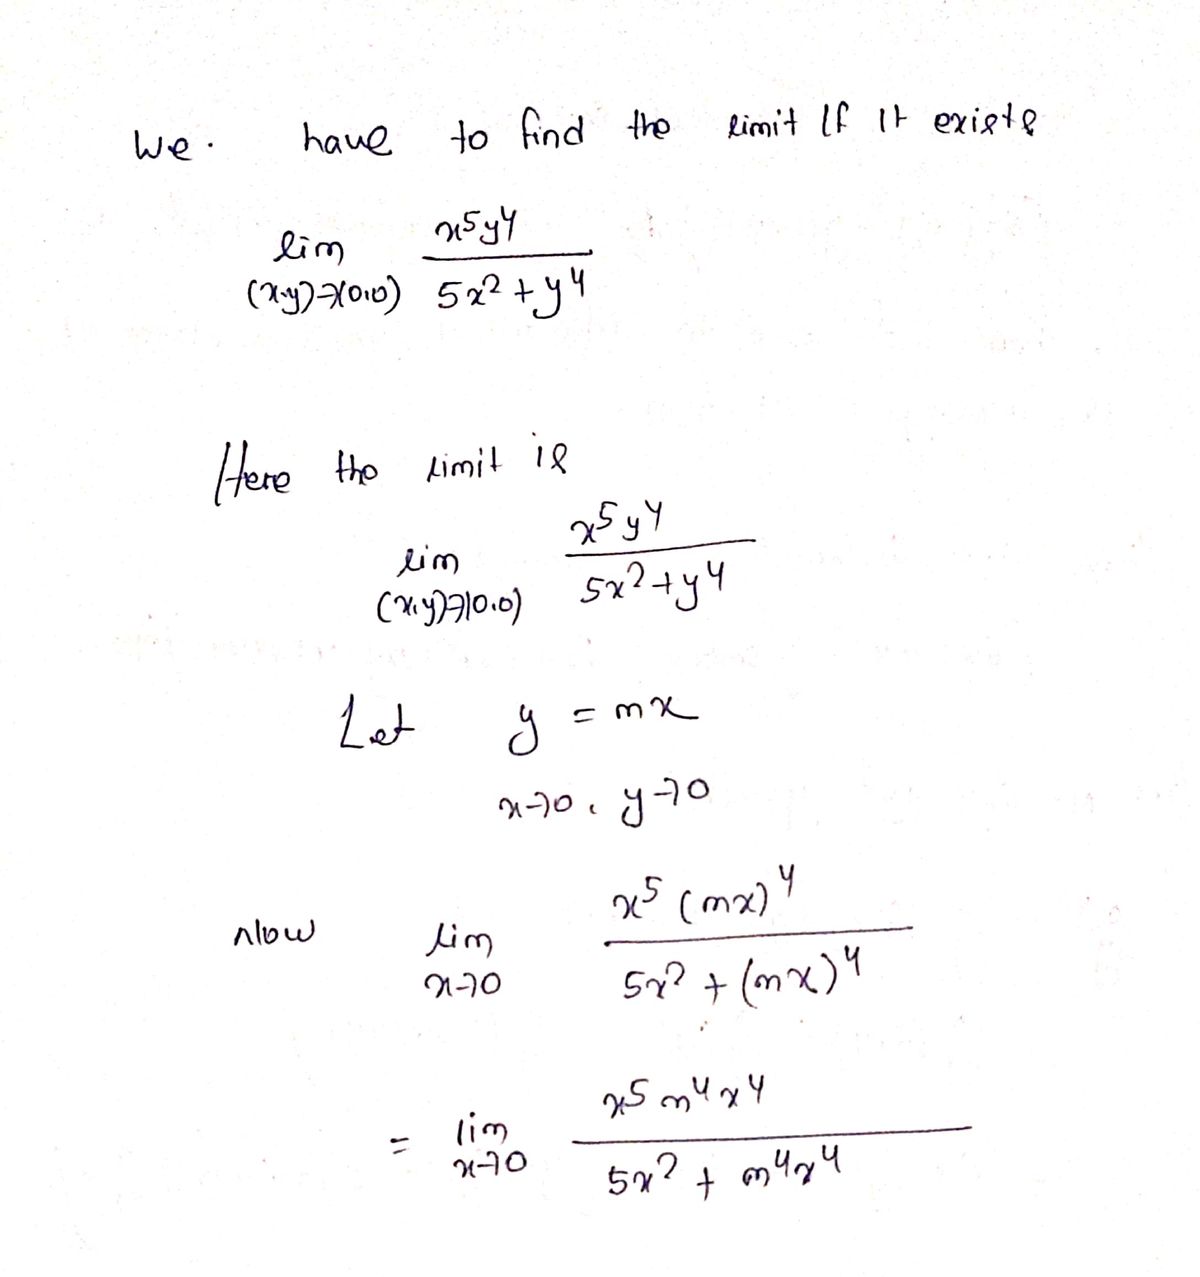 We. have to find the limit if it exists
lim x⁵y⁴
(x,y)→(0,0) 5x² + y⁴
Here the limit is
lim x⁵y⁴
(x,y)→(0,0) 5x² + y⁴
Let y = mx
x→0, y→0
Now lim x⁵ (mx)⁴
x→0 5x² + (mx)⁴
= lim x⁵ m⁴ x⁴
x→0 5x² + m⁴x⁴